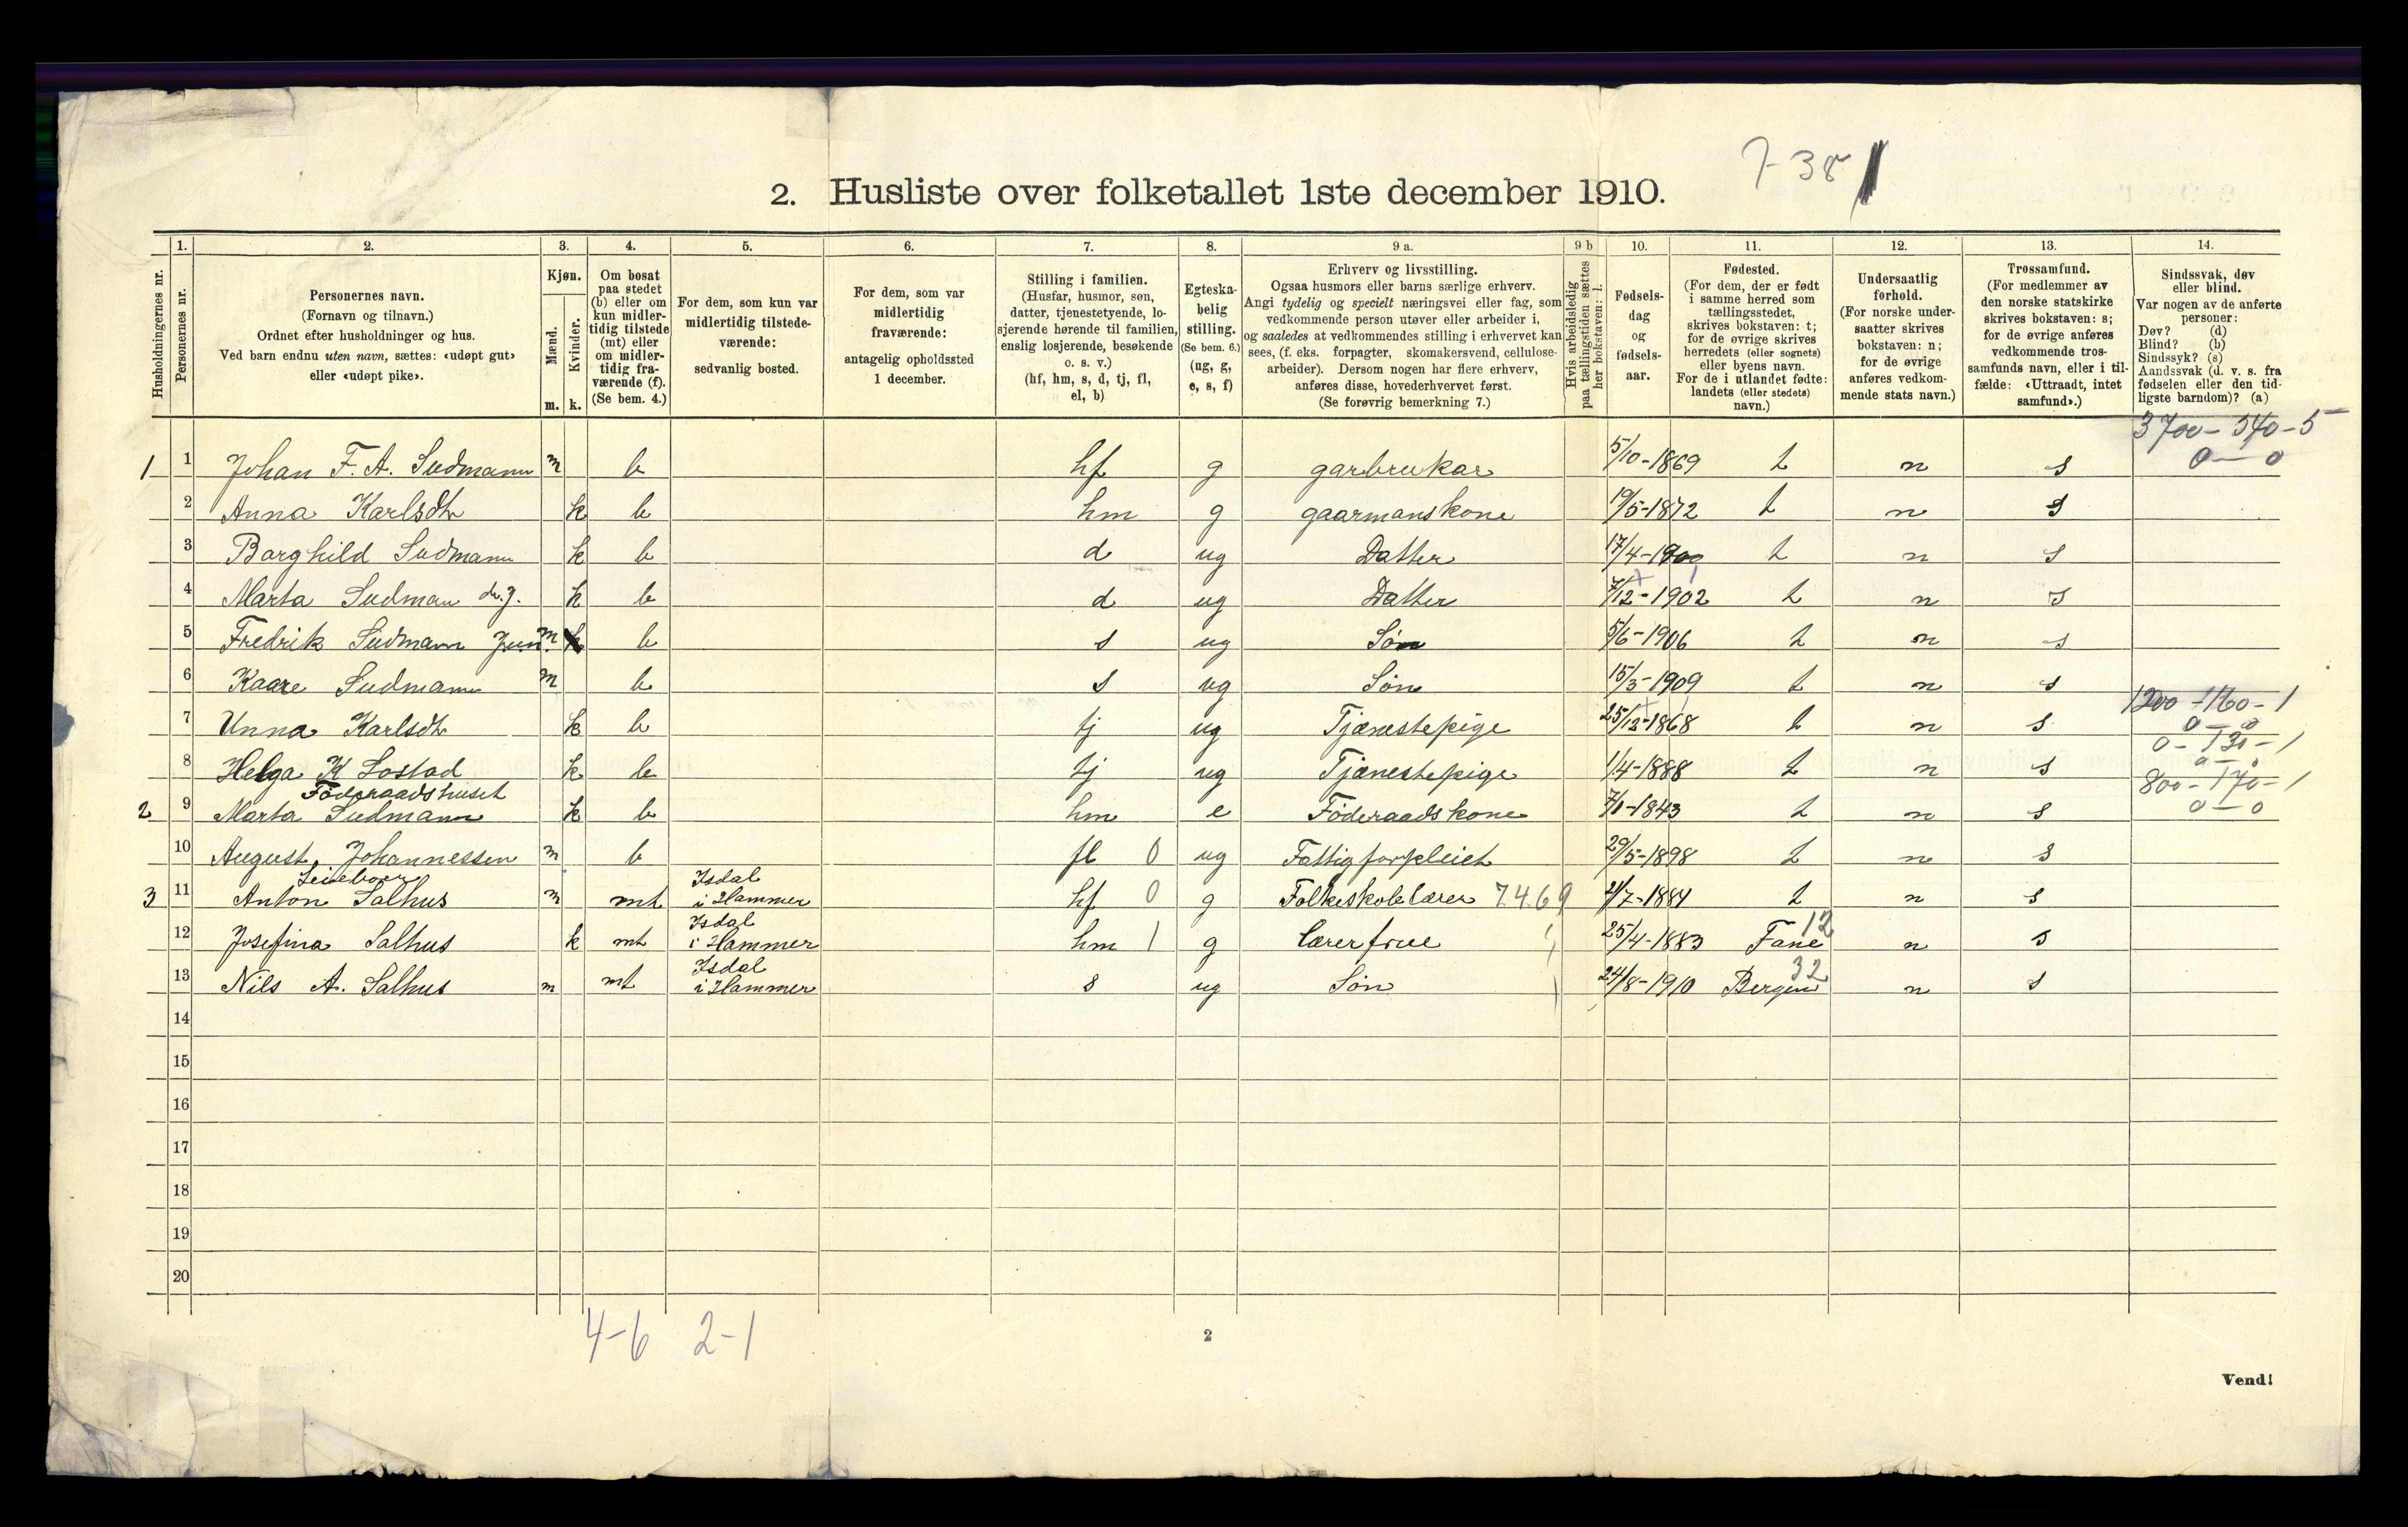 7-38
2. Husliste over folketallet 1ste december 1910.
Husholdningernes nr.
1.
Personernes nr.
2.
Personernes navn.
(Fornavn og tilnavn.)
Ordnet efter husholdninger og hus.
Ved barn endnu uten navn, sættes: «udøpt gut»
eller «udøpt pike».
3.
Kjøn.
Mænd.
Kvinder.
m. k.
4.
Om bosat
paa stedet
(b) eller om
kun midler-
tidig tilstede
(mt) eller
om midler-
tidig fra-
værende (f).
(Se bem. 4.)
5.
For dem, som kun var
midlertidig tilstede-
værende:
sedvanlig bosted.
6.
For dem, som var
midlertidig
fraværende:
antagelig opholdssted
1 december.
7.
Stilling i familien.
(Husfar, husmor, søn,
datter, tjenestetyende, lo-
sjerende hørende til familien,
enslig losjerende, besøkende
o. s. v.)
(hf, hm, s, d, tj, fl,
el, b)
8.
Egteska-
belig
stilling.
(Se bem. 6.)
(ug, g,
e, s, f)
9 a.
Erhverv og livsstilling.
Ogsaa husmors eller barns særlige erhverv.
Angi tydelig og specielt næringsvei eller fag, som
vedkommende person utøver eller arbeider i,
og saaledes at vedkommendes stilling i erhvervet kan
sees, (f. eks. forpagter, skomakersvend, cellulose-
arbeider). Dersom nogen har flere erhverv,
anføres disse, hovederhvervet først.
(Se forøvrig bemerkning 7.)
9 b
Hvis arbeidsledig
paa tællingstiden sættes
her bokstaven: l.
10.
Fødsels-
dag
og
fødsels-
aar.
11.
Fødested.
(For dem, der er født
i samme herred som
tællingsstedet,
skrives bokstaven: t;
for de øvrige skrives
herredets (eller sognets)
eller byens navn.
For de i utlandet fødte:
landets (eller stedets)
navn.)
12.
Undersaatlig
forhold.
(For norske under-
saatter skrives
bokstaven: n;
for de øvrige
anføres vedkom-
mende stats navn.)
13.
Trossamfund.
(For medlemmer av
den norske statskirke
skrives bokstaven: s;
for de øvrige anføres
vedkommende tros-
samfunds navn, eller i til-
fælde: «Uttraadt, intet
samfund».)
14.
Sindssvak, døv
eller blind.
Var nogen av de anførte
personer:
Døv? (d)
Blind? (b)
Sindssyk? (s)
Aandssvak (d. v. s. fra
fødselen eller den tid-
ligste barndom)? (a)
3700-540-5
1 1 Johan F. A. Sudmann m b hf g garbrukar 5/10-1869 t n s 0-0
2 Anna Karlsdtr k b hm g gaarmanskone 19/5-1872 t n s
3 Borghild Sudmann k b d ug Datter 17/4-1900 t n s
4 Marta Sudman d.y. k b d ug Datter 7/12-1902 t n s
5 Fredrik Sudmann Jun. m b s ug Søn 5/6-1906 t n s
6 Kaare Sudmann m b s ug Søn 15/3-1909 t n s
1200-160-1
7 Unna Karlsdtr k b tj ug Tjænestepige 25/12-1868 t n s 0-0
0-130-1
8 Helga K Lostad k b tj ug Tjænestepige 1/4-1888 t n s 0-0
Föderaadshuset 800-170-1
2 9 Marta Sudmann k b hm e Föderaadskone 7/1-1843 t n s 0-0
10 August Johannessen m b fl 0 ug Fattigforpleiet 29/5-1898 t n s
Leieboer Isdal
3 11 Anton Salhus m mt i Hammer hf 0 g Folkeskolelærer 7.4.69 2/7-1884 t n s
Isdal 12
12 Josefina Salhus k mt i Hammer hm 1 g Lærerfrue 25/4-1883 Fane n s
Isdal 32
13 Nils A. Salhus m mt i Hammer s ug Søn 24/8-1910 Bergen n s
14
15
16
17
18
19
20
4-6 2-1
2
Vend!